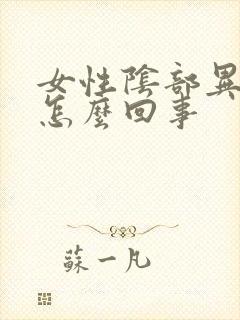 女性陰部異
怎麼回事
蘇一凡